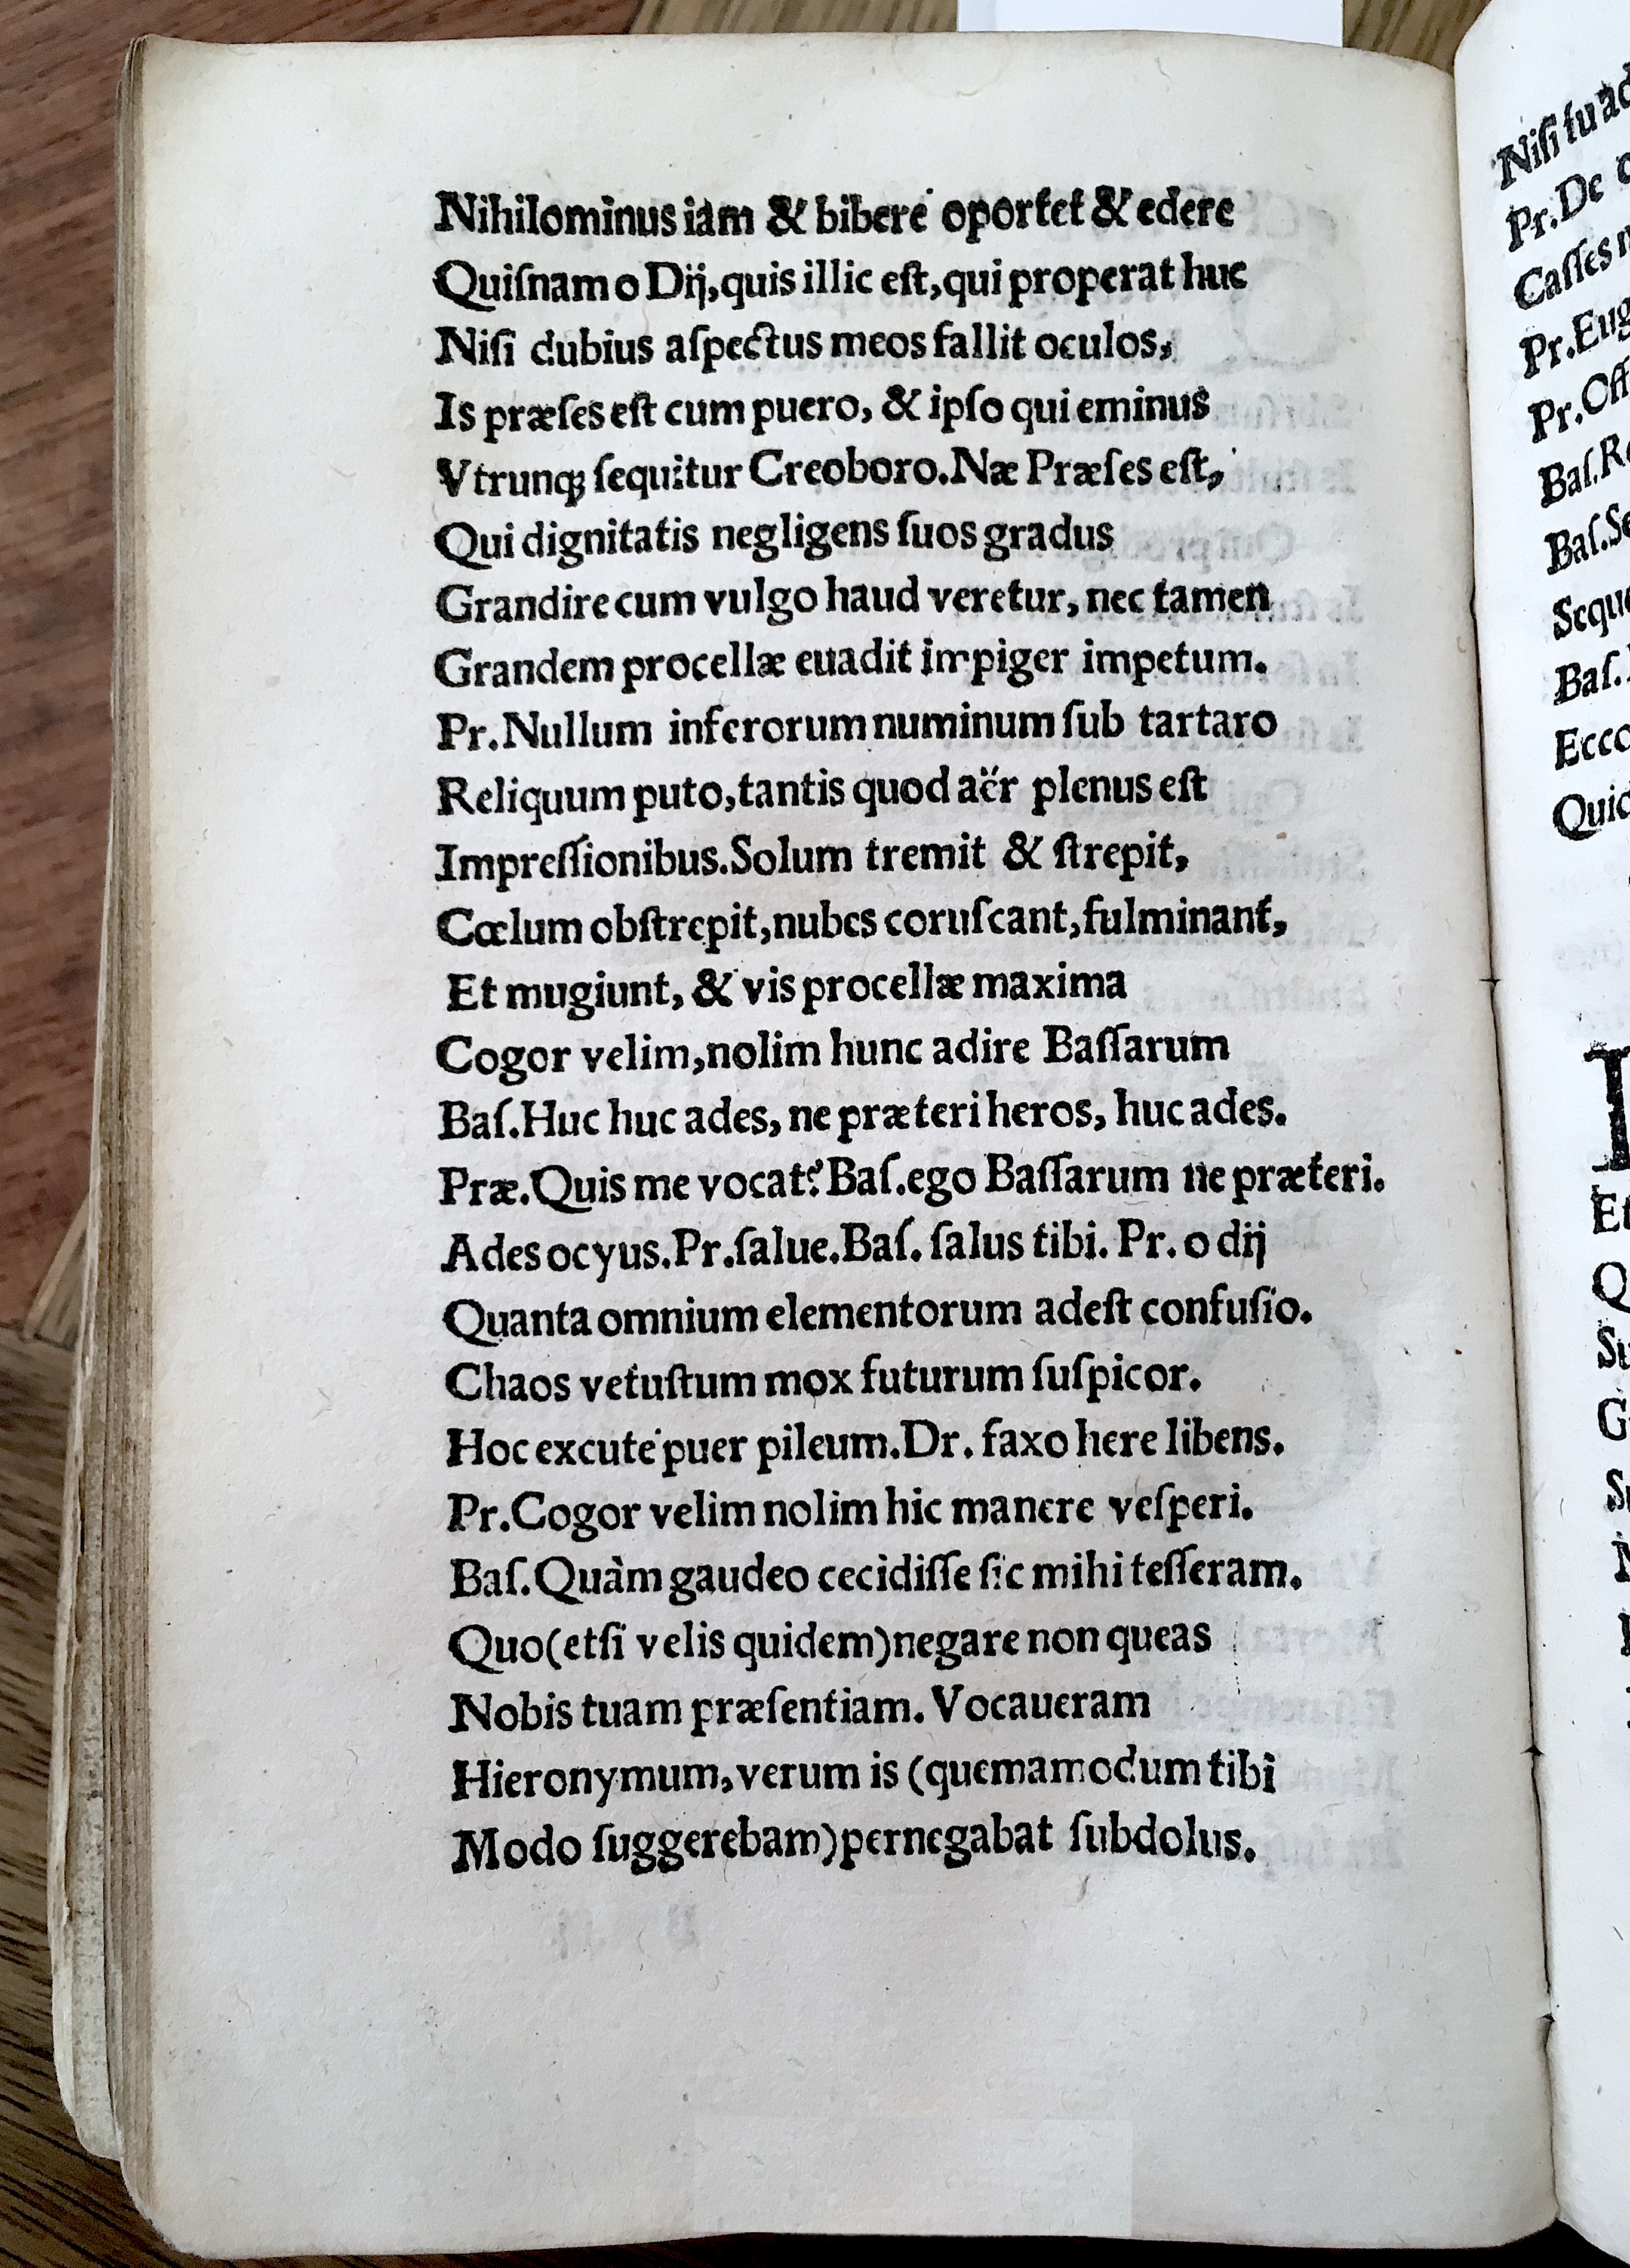 Nihilominus iam & bibere oportet & edere
Quiſnam o Dij, quis illic eſt, qui properat huc
Niſi dubius aſpectus meos fallit oculos,
Is præſes eſt cum puero, & ipſo qui eminus
Vtrunqꝫ ſequitur Creoboro. Næ Præſes eſt,
Qui dignitatis negligens ſuos gradus
Grandire cum vulgo haud veretur, nec tamen
Grandem procellæ euadit impiger impetum.
Pr. Nullum inferorum numinum ſub tartaro
Reliquum puto, tantis quod aër plenus eſt
Impreſſionibus. Solum tremit & ſtrepit,
Cœlum obſtrepit, nubes coruſcant, fulminant,
Et mugiunt, & vis procellæ maxima
Cogor velim, nolim hunc adire Baſſarum
Baſ. Huc huc ades, ne præteri heros, huc ades.
Præ. Quis me vocat? Baſ. ego Baſſarum ne præteri.
Ades ocyus. Pr. ſalue. Baſ. ſalus tibi. Pr. o dij
Quanta omnium elementorum adeſt confuſio.
Chaos vetuſtum mox futurum ſuſpicor.
Hoc excute puer pileum. Dr. faxo here libens.
Pr. Cogor velim nolim hic manere veſperi.
Baſ. Quàm gaudeo cecidiſſe ſic mihi teſſeram.
Quo (etſi velis quidem) negare non queas
Nobis tuam præſentiam. Vocaueram
Hieronymum, verum is (quemamodum tibi
Modo ſuggerebam) pernegabat ſubdolus.
Niſi tu
Pr. De
Caſſes
Pr. Eug
Pr. Off
Baſ.
Baſ.
Seque
Baſ.
Ecco
Quid